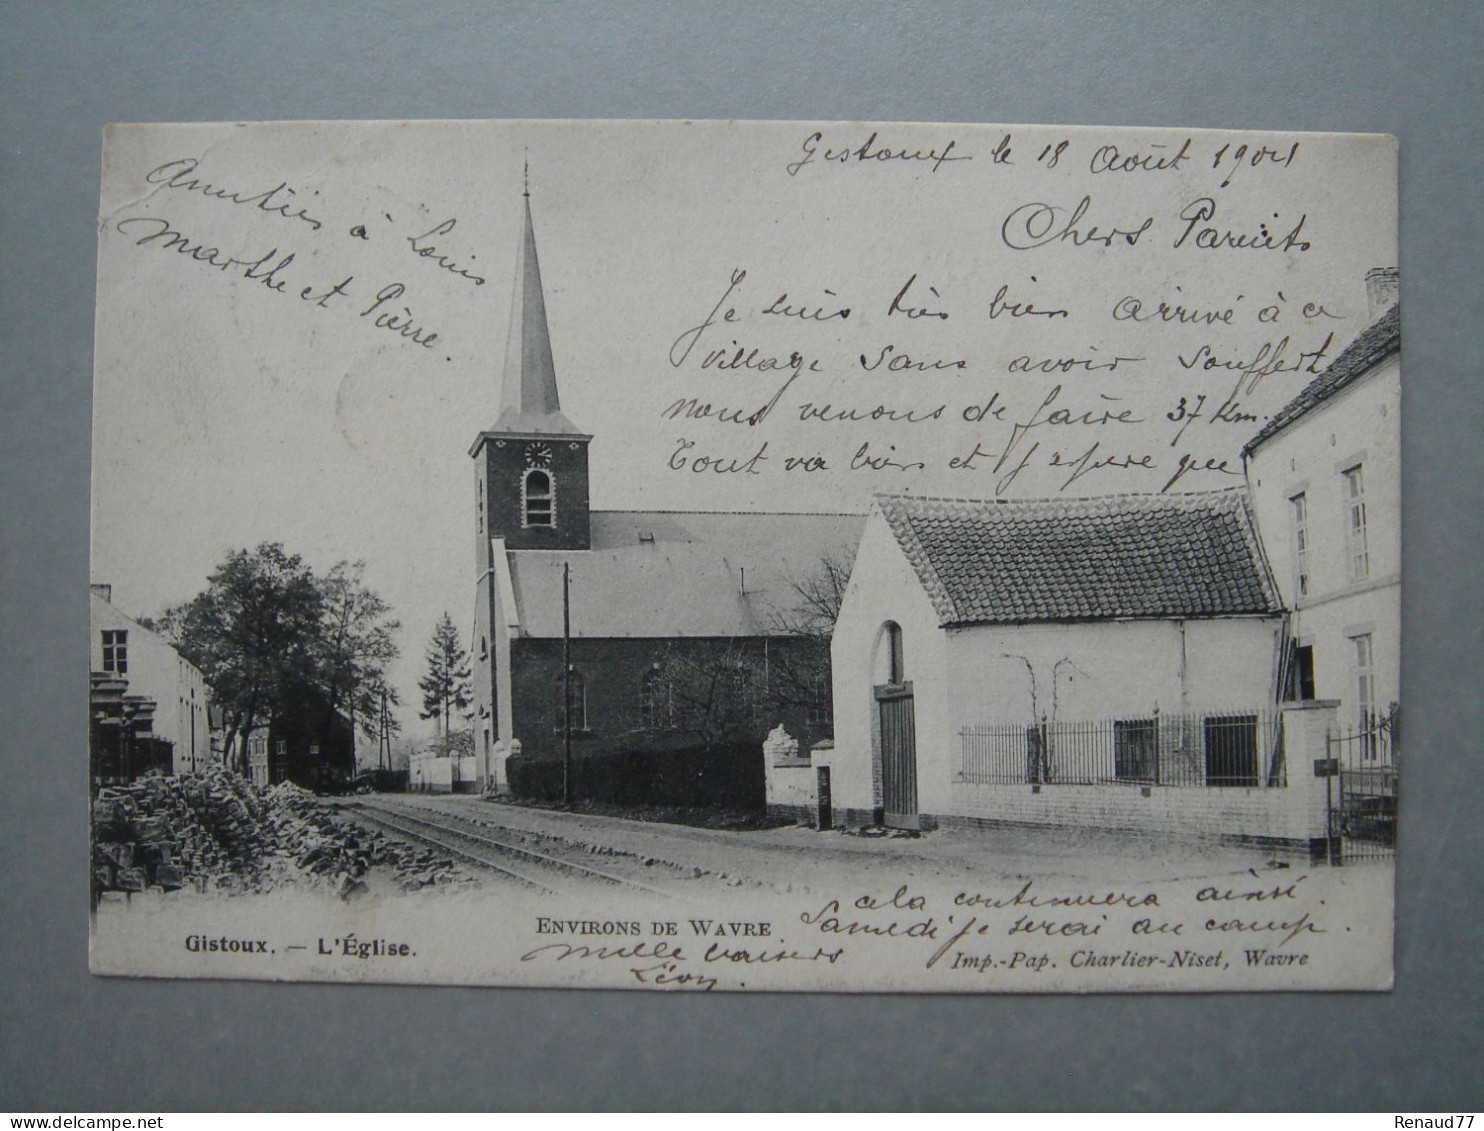 Gestoux le 18 Août 1904
Amitiés à Louis
Marthe et Pierre.
Chers Parents
Je suis très bien arrivé à ce
village sans avoir souffert
nous venons de faire 37 Km.
Tout va bien et j'espère que
cela continuera ainsi.
Samedi je serai au camp.
mille baisers
Léon.
ENVIRONS DE WAVRE
Gistoux. — L'Église.
Imp.-Pap. Charlier-Niset, Wavre
delcampe.net
Renaud77